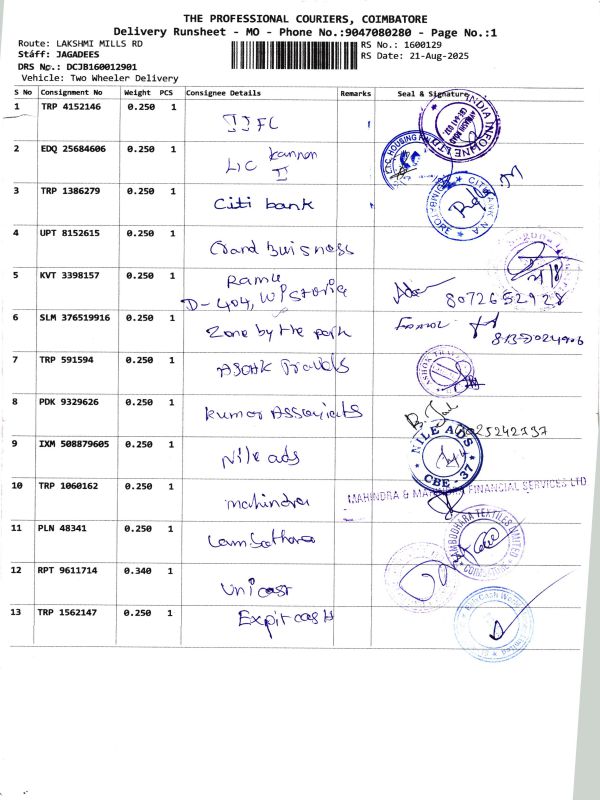 THE PROFESSIONAL COURIERS, COIMBATORE
Delivery Runsheet - MO - Phone No.:9047080280 - Page No.:1
Route: LAKSHMI MILLS RD RS No.: 1600129
Staff: JAGADEES RS Date: 21-Aug-2025
DRS No.: DCJB160012901
Vehicle: Two Wheeler Delivery
S No Consignment No Weight PCS Consignee Details Remarks Seal & Signature
1 TRP 4152146 0.250 1 IIFL INDIA INFOLINE LTD
2 EDQ 25684606 0.250 1 LIC kannan II LIC HOUSING
3 TRP 1386279 0.250 1 Citi bank CITIBANK
4 UPT 8152615 0.250 1 Grand Buisness
5 KVT 3398157 0.250 1 Ramu
D-404, W/P Storie 8072652928
6 SLM 376519916 0.250 1 Zone by the park
7 TRP 591594 0.250 1 Ashok Travels ASHOK TRAVELS
8 PDK 9329626 0.250 1 Kumar Associats
9 IXM 508879605 0.250 1 Nile ads NILE ADS CBE - 37
10 TRP 1060162 0.250 1 mahindra MAHINDRA & MAHINDRA FINANCIAL SERVICES LTD
11 PLN 48341 0.250 1 Lambothara LAMBODHARA TEXTILES LIMITED COIMBATORE
12 RPT 9611714 0.340 1 Unicast
13 TRP 1562147 0.250 1 Expit cash